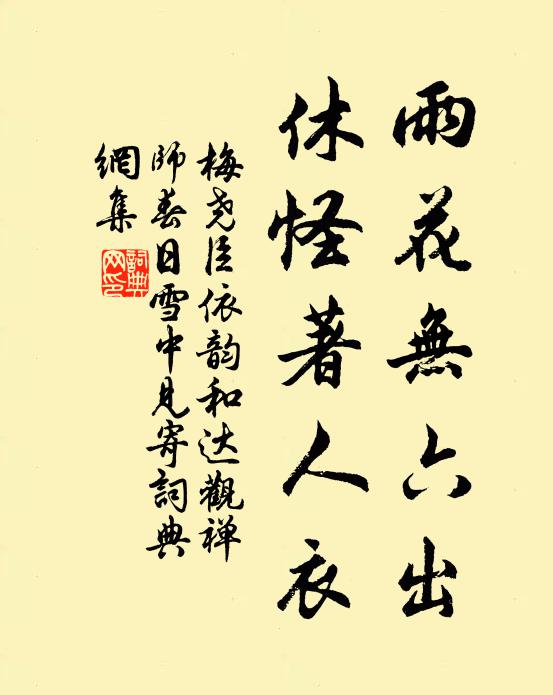 雨花無六出
休怪著人衣
梅尧臣依韵和达觀禅
師春日雪中見寄詞典
網集
詞典
网印